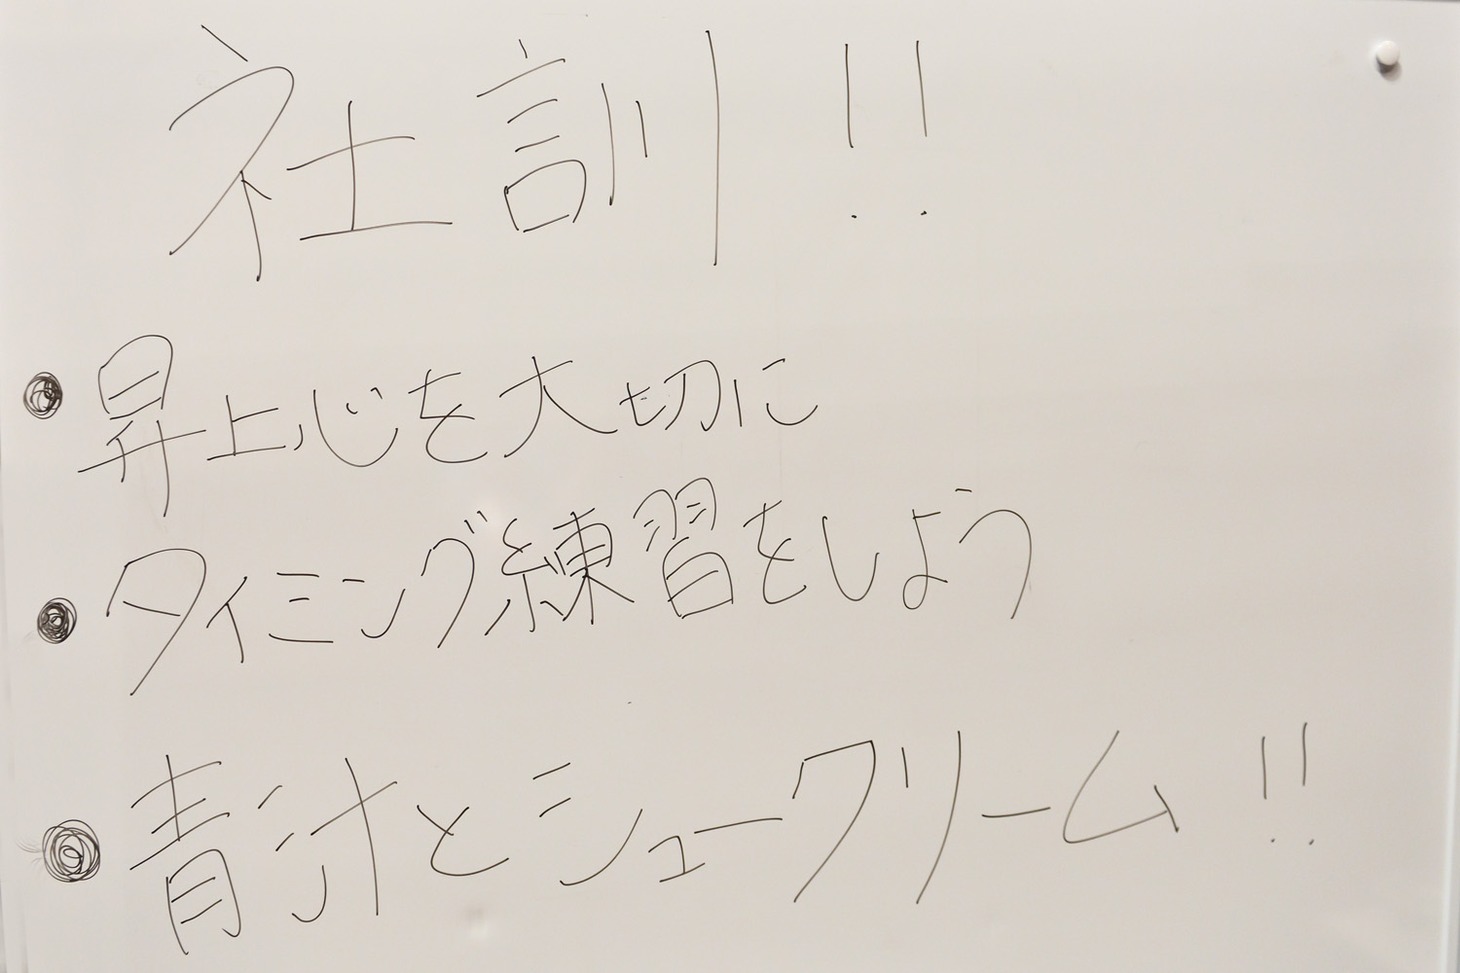 社訓!!
・昇上心を大切に
・タイミング練習をしよう
・青汁とシュークリーム!!